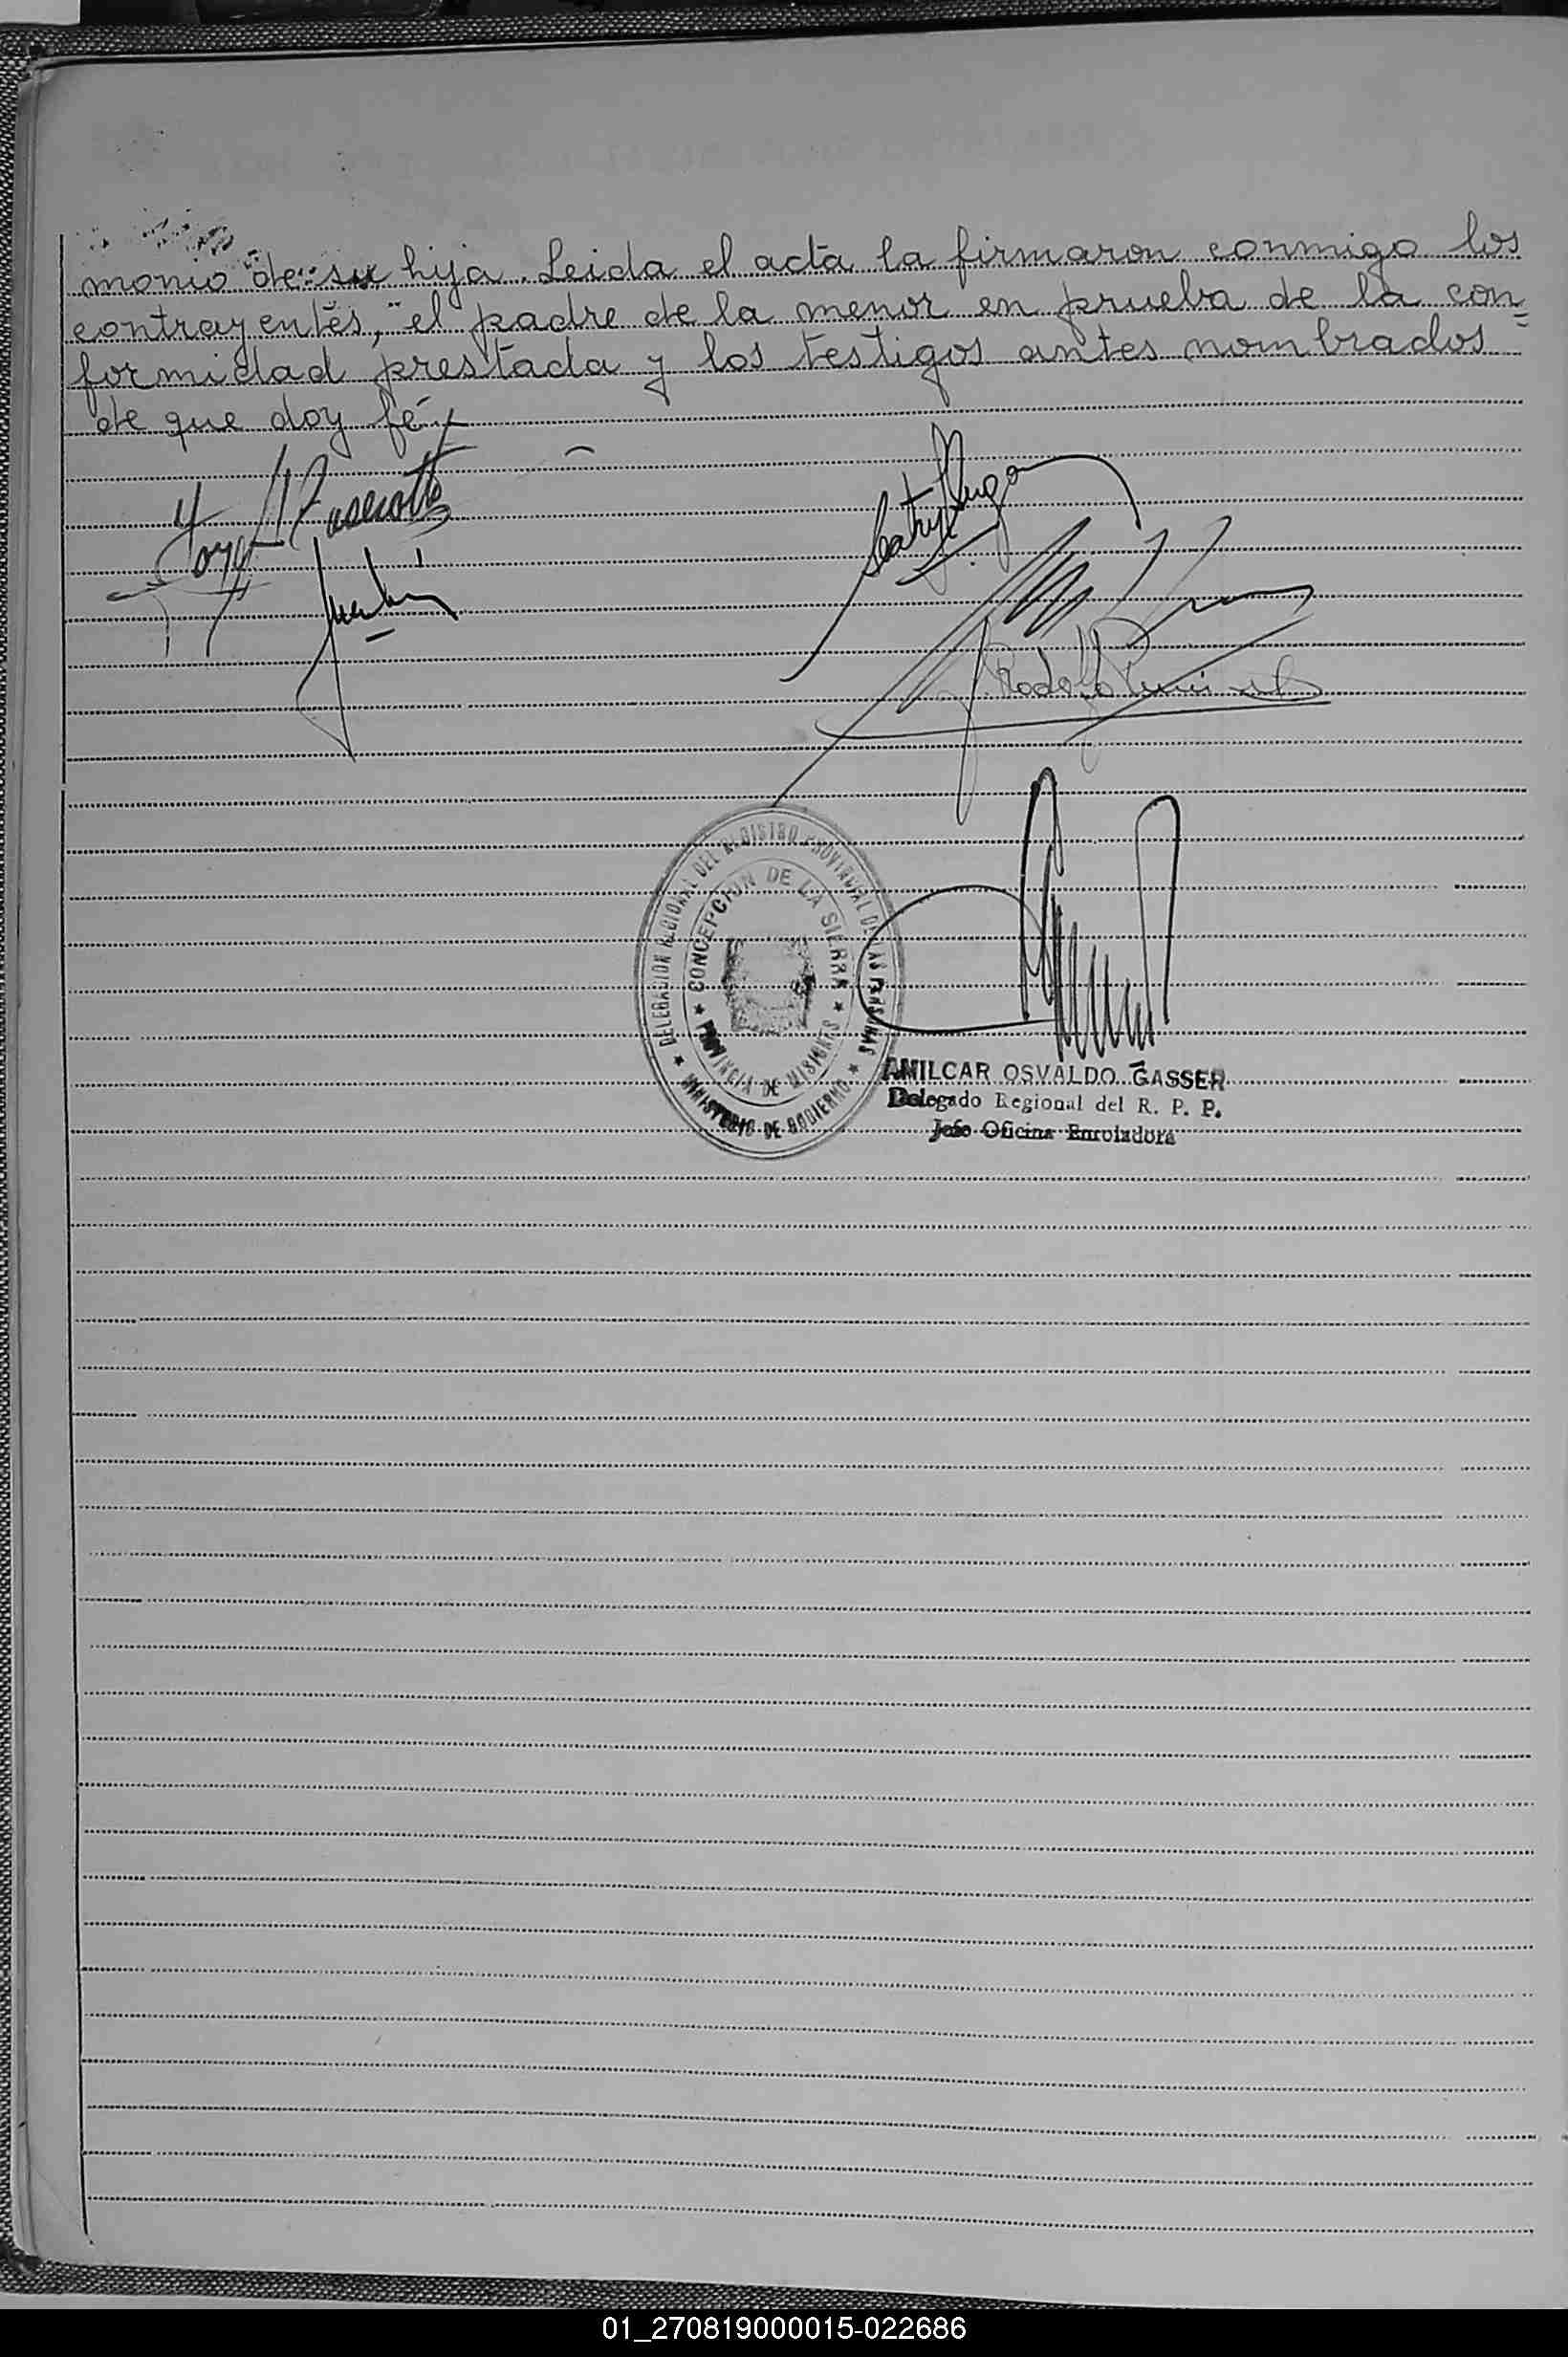 monio de su hija. Leida el acta la firmaron conmigo los
contrayentes, el padre de la menor en prueba de la con
formidad prestada y los testigos antes nombrados=
de que doy fé.
Rodolfo
DELEGACION REGIONAL DEL REGISTRO PROVINCIAL DE LAS PERSONAS
★ MINISTERIO DE GOBIERNO ★
★ CONCEPCION DE LA SIERRA ★
PROVINCIA DE MISIONES
AMILCAR OSVALDO GASSER
Delegado Regional del R. P. P.
Jefe Oficina Enroladora
01_270819000015-022686